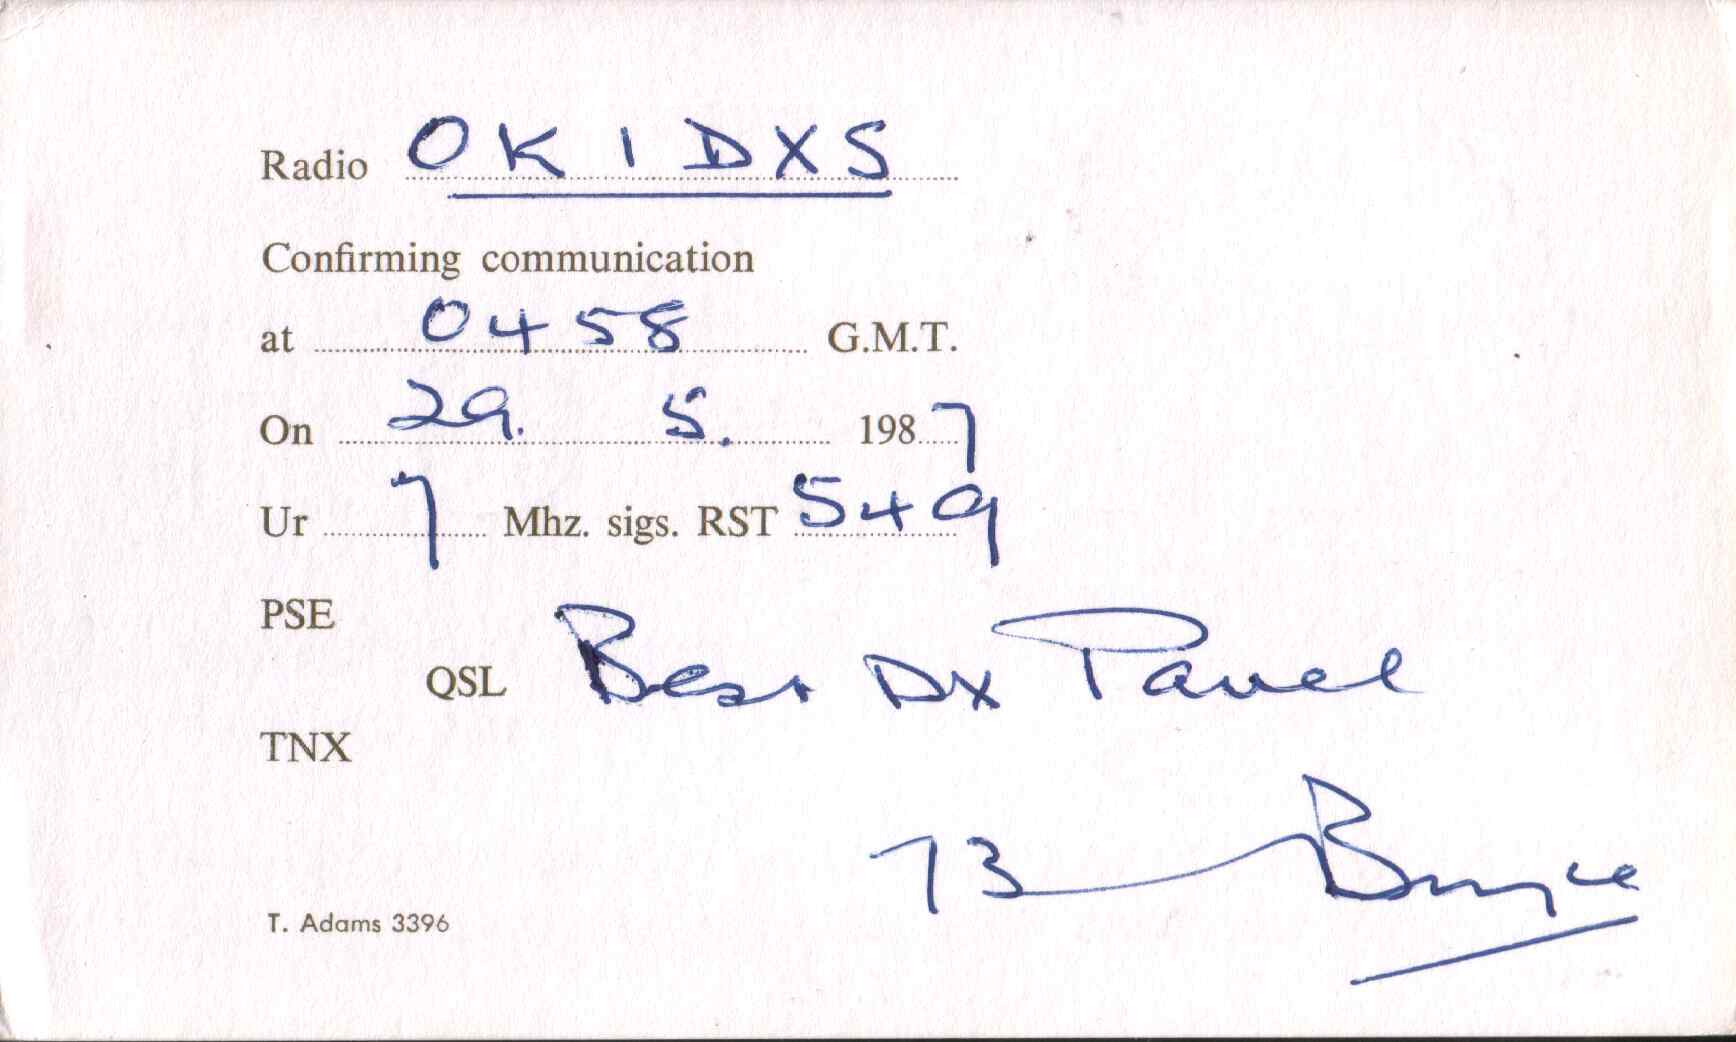 Radio OK1DXS
Confirming communication
at 0458 G.M.T.
On 29. 5. 1987
Ur 7 Mhz. sigs. RST 549
PSE
QSL Best DX Pavel
TNX
73 Bryce
T. Adams 3396